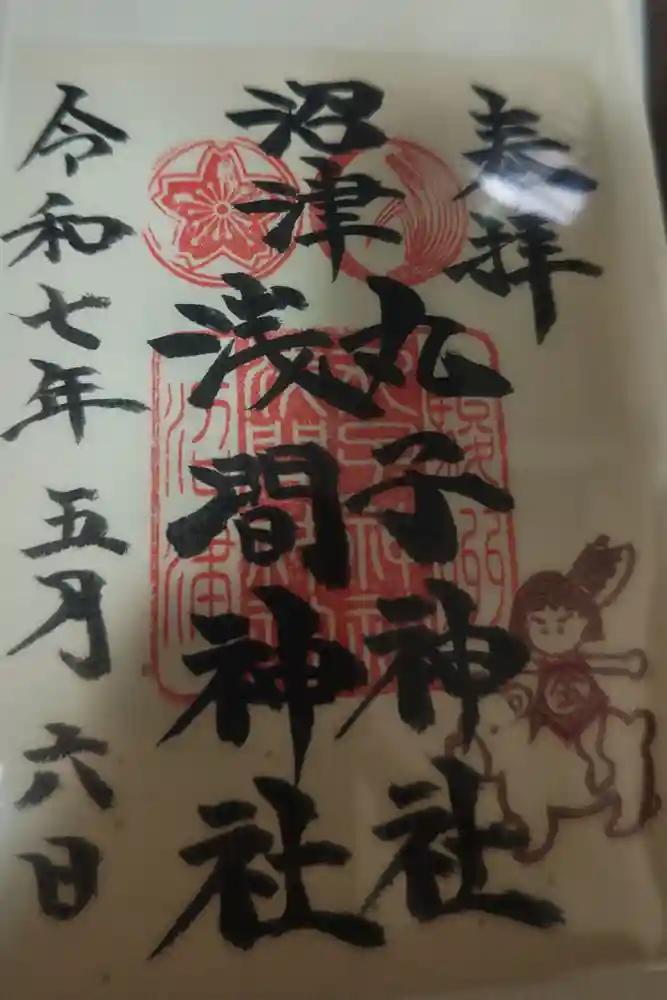 奉拝
沼津
丸子神社
浅間神社
令和七年 五月 六日
金